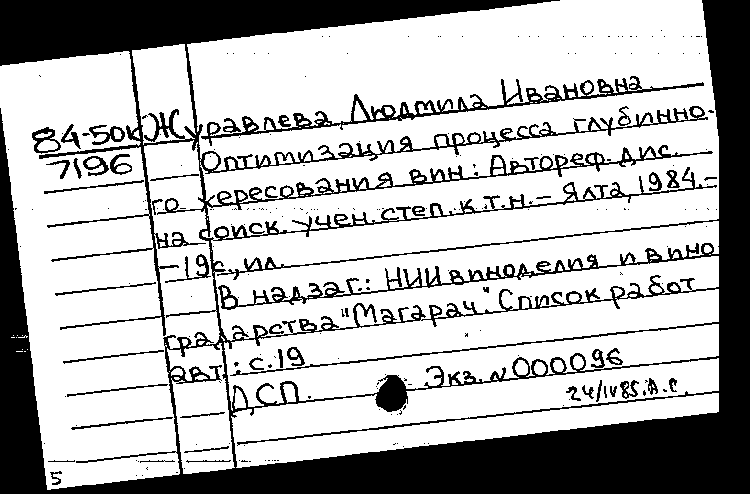 84-50к Журавлева, Людмила Ивановна.
7196 Оптимизация процесса глубинно-
го хересования вин: Автореф. дис.
на соиск. учен. степ. к.т.н. – Ялта, 1984. –
– 19с., ил.
В надзаг.: НИИ виноделия и вино
градарства "Магарач". Список работ
авт.: с. 19
ДСП. Экз. N 000096
24/IV85. А.С.
5